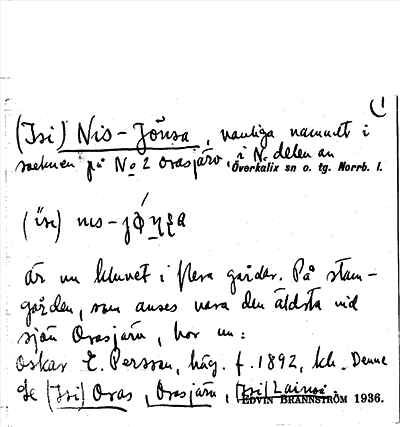 (1
(Isi) Nis-Jönsa, vanliga namnet i
socknen på No 2 Orasjärv, i N. delen av
Överkalix sn o. tg. Norrb. l.
(isi)
är nu kluvet i flera gårdar. På stam-
gården, som anses vara den äldsta vid
sjön Orasjärv, bor nu:
Oskar E. Persson, häg. f. 1892, kb. Denne
Se (Isi) Oras, Orasjärv, (Isi) Lainsi.
EDVIN BRÄNNSTRÖM 1936.